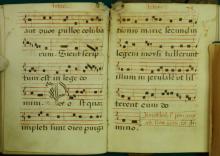 aut duos pullos columba
rum. Sicut scrip
tum est in lege do
mini. Postquam
impleti sunt dies purga
tionis marie secundum
legem moysi tulerunt
illum in jerusalem ut sis
terent eum do
mino.